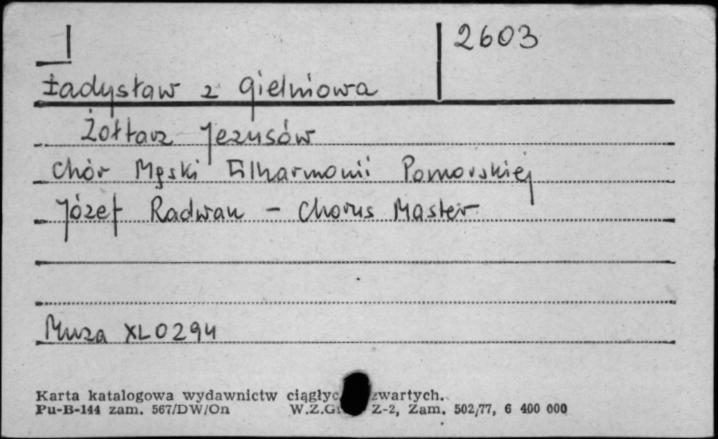 2603
Ładysław z Gielniowa
Żołtarz Jezusów
Chór Męski Filharmonii Pomorskiej
Józef Radwan - Chorus Master
Muza XL0294
Karta katalogowa wydawnictw ciągłyc zwartych.
Pu-B-144 zam. 567/DW/On W.Z.G Z-2, Zam. 502/77, 6 400 000